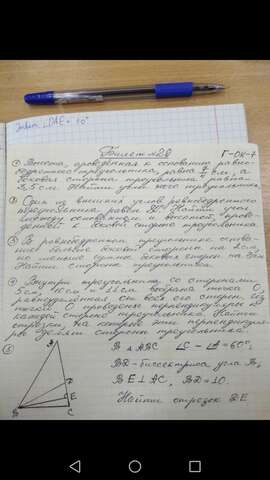 ∠DAE = 10°
Билет №28
Г-ОК-7
① Высота, проведённая к основанию равно-
бедренного треугольника, равна см, а
боковая сторона треугольника равна
3,5 см. Найти углы этого треугольника.
② Один из внешних углов равнобедренного
треугольника равен Найти угол
между основанием и высотой, прове-
дённой к боковой стороне треугольника.
③ В равнобедренном треугольнике осно-
вание больше боковой стороны на 2 см,
но меньше суммы боковых сторон на
Найти стороны треугольника.
④ Внутри треугольника со сторонами
5 см, 10 см и 11 см выбрана точка O,
равноудалённая от всех его сторон. Из
точки O проведены перпендикуляры к
каждой стороне треугольника. Найти
отрезки, на которые эти перпендикуля-
ры делят стороны треугольника.
⑤
В △ ABC ∠C − ∠A = 60°,
BD - биссектриса угла B,
BE ⊥ AC, BD = 10.
Найти отрезок DE
A
D
E
B
C